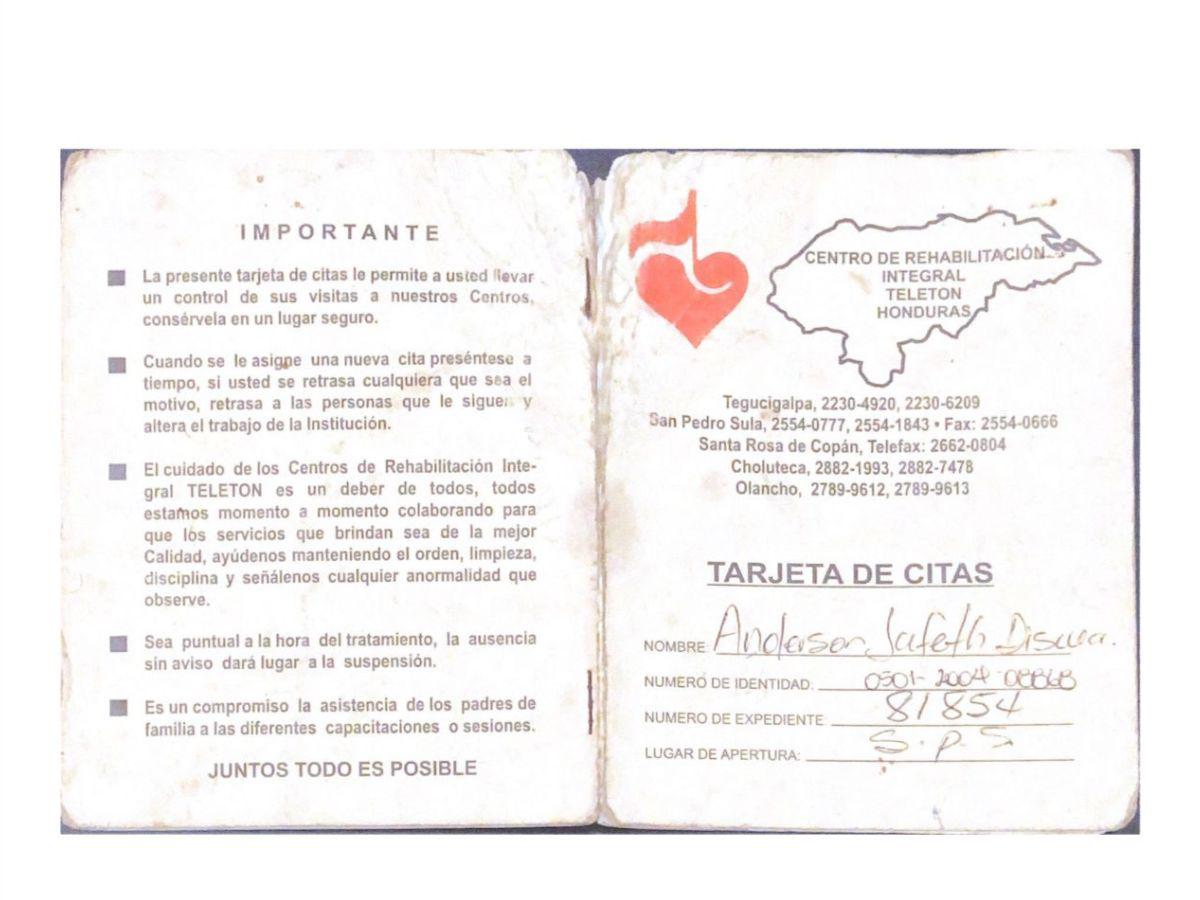 IMPORTANTE
La presente tarjeta de citas le permite a usted llevar
un control de sus visitas a nuestros Centros,
consérvela en un lugar seguro.
Cuando se le asigne una nueva cita preséntese a
tiempo, si usted se retrasa cualquiera que sea el
motivo, retrasa a las personas que le siguen y
altera el trabajo de la Institución.
El cuidado de los Centros de Rehabilitación Inte-
gral TELETON es un deber de todos, todos
estamos momento a momento colaborando para
que los servicios que brindan sea de la mejor
Calidad, ayúdenos manteniendo el orden, limpieza,
disciplina y señálenos cualquier anormalidad que
observe.
Sea puntual a la hora del tratamiento, la ausencia
sin aviso dará lugar a la suspensión.
Es un compromiso la asistencia de los padres de
familia a las diferentes capacitaciones o sesiones.
JUNTOS TODO ES POSIBLE
CENTRO DE REHABILITACIÓN
INTEGRAL
TELETON
HONDURAS
Tegucigalpa, 2230-4920, 2230-6209
San Pedro Sula, 2554-0777, 2554-1843 • Fax: 2554-0666
Santa Rosa de Copán, Telefax: 2662-0804
Choluteca, 2882-1993, 2882-7478
Olancho, 2789-9612, 2789-9613
TARJETA DE CITAS
NOMBRE: Anderson Jafeth
NUMERO DE IDENTIDAD:
NUMERO DE EXPEDIENTE: 81854
LUGAR DE APERTURA: S.P.S.